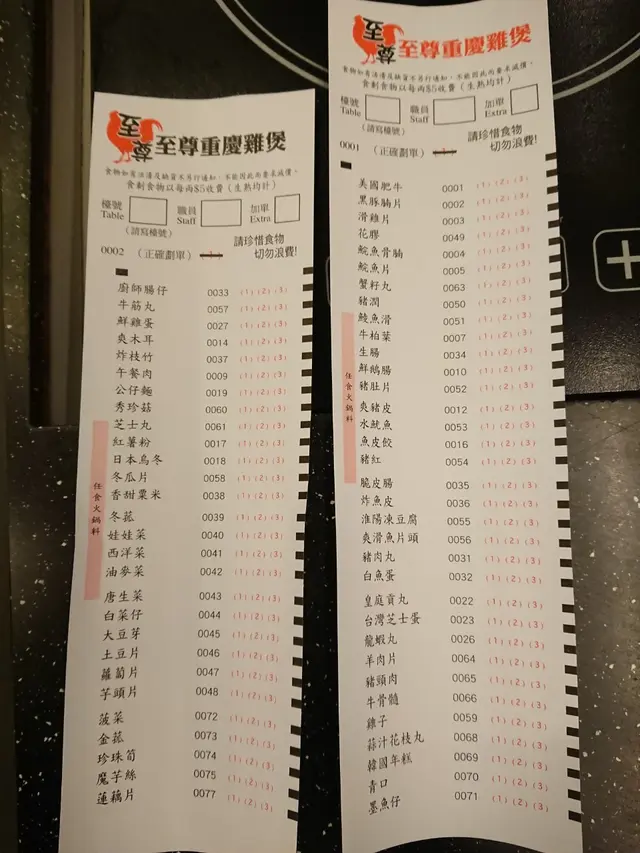 至尊
至尊重慶雞煲
食物如有沽清及缺貨不另行通知,不能因此而要求減價。
食剩食物以每両$5收費(生熟均計)
檯號 Table
職員 Staff
加單 Extra
(請寫檯號)
請珍惜食物
切勿浪費!
0002 (正確劃單)
廚師腸仔 0033 (1) (2) (3)
牛筋丸 0057 (1) (2) (3)
鮮雞蛋 0027 (1) (2) (3)
爽木耳 0014 (1) (2) (3)
炸枝竹 0037 (1) (2) (3)
午餐肉 0009 (1) (2) (3)
公仔麵 0019 (1) (2) (3)
秀珍菇 0060 (1) (2) (3)
芝士丸 0061 (1) (2) (3)
紅薯粉 0017 (1) (2) (3)
日本烏冬 0018 (1) (2) (3)
冬瓜片 0058 (1) (2) (3)
香甜粟米 0038 (1) (2) (3)
冬菰 0039 (1) (2) (3)
娃娃菜 0040 (1) (2) (3)
西洋菜 0041 (1) (2) (3)
油麥菜 0042 (1) (2) (3)
唐生菜 0043 (1) (2) (3)
白菜仔 0044 (1) (2) (3)
大豆芽 0045 (1) (2) (3)
土豆片 0046 (1) (2) (3)
蘿蔔片 0047 (1) (2) (3)
芋頭片 0048 (1) (2) (3)
菠菜 0072 (1) (2) (3)
金菰 0073 (1) (2) (3)
珍珠筍 0074 (1) (2) (3)
魔芋絲 0075 (1) (2) (3)
蓮藕片 0077 (1) (2) (3)
任食火鍋料
至尊
至尊重慶雞煲
食物如有沽清及缺貨不另行通知,不能因此而要求減價。
食剩食物以每両$5收費(生熟均計)
檯號 Table
職員 Staff
加單 Extra
(請寫檯號)
請珍惜食物
切勿浪費!
0001 (正確劃單)
美國肥牛 0001 (1) (2) (3)
黑豚腩片 0002 (1) (2) (3)
滑雞片 0003 (1) (2) (3)
花膠 0049 (1) (2) (3)
鯇魚骨腩 0004 (1) (2) (3)
鯇魚片 0005 (1) (2) (3)
蟹籽丸 0063 (1) (2) (3)
豬潤 0050 (1) (2) (3)
鯪魚滑 0051 (1) (2) (3)
牛柏葉 0007 (1) (2) (3)
生腸 0034 (1) (2) (3)
鮮鵝腸 0010 (1) (2) (3)
豬肚片 0052 (1) (2) (3)
爽豬皮 0012 (1) (2) (3)
水魷魚 0053 (1) (2) (3)
魚皮餃 0016 (1) (2) (3)
豬紅 0054 (1) (2) (3)
脆皮腸 0035 (1) (2) (3)
炸魚皮 0036 (1) (2) (3)
淮陽凍豆腐 0055 (1) (2) (3)
爽滑魚片頭 0056 (1) (2) (3)
豬肉丸 0031 (1) (2) (3)
白魚蛋 0032 (1) (2) (3)
皇庭貢丸 0022 (1) (2) (3)
台灣芝士蛋 0023 (1) (2) (3)
龍蝦丸 0026 (1) (2) (3)
羊肉片 0064 (1) (2) (3)
豬頸肉 0065 (1) (2) (3)
牛骨髓 0066 (1) (2) (3)
雞子 0059 (1) (2) (3)
蒜汁花枝丸 0068 (1) (2) (3)
韓國年糕 0069 (1) (2) (3)
青口 0070 (1) (2) (3)
墨魚仔 0071 (1) (2) (3)
任食火鍋料